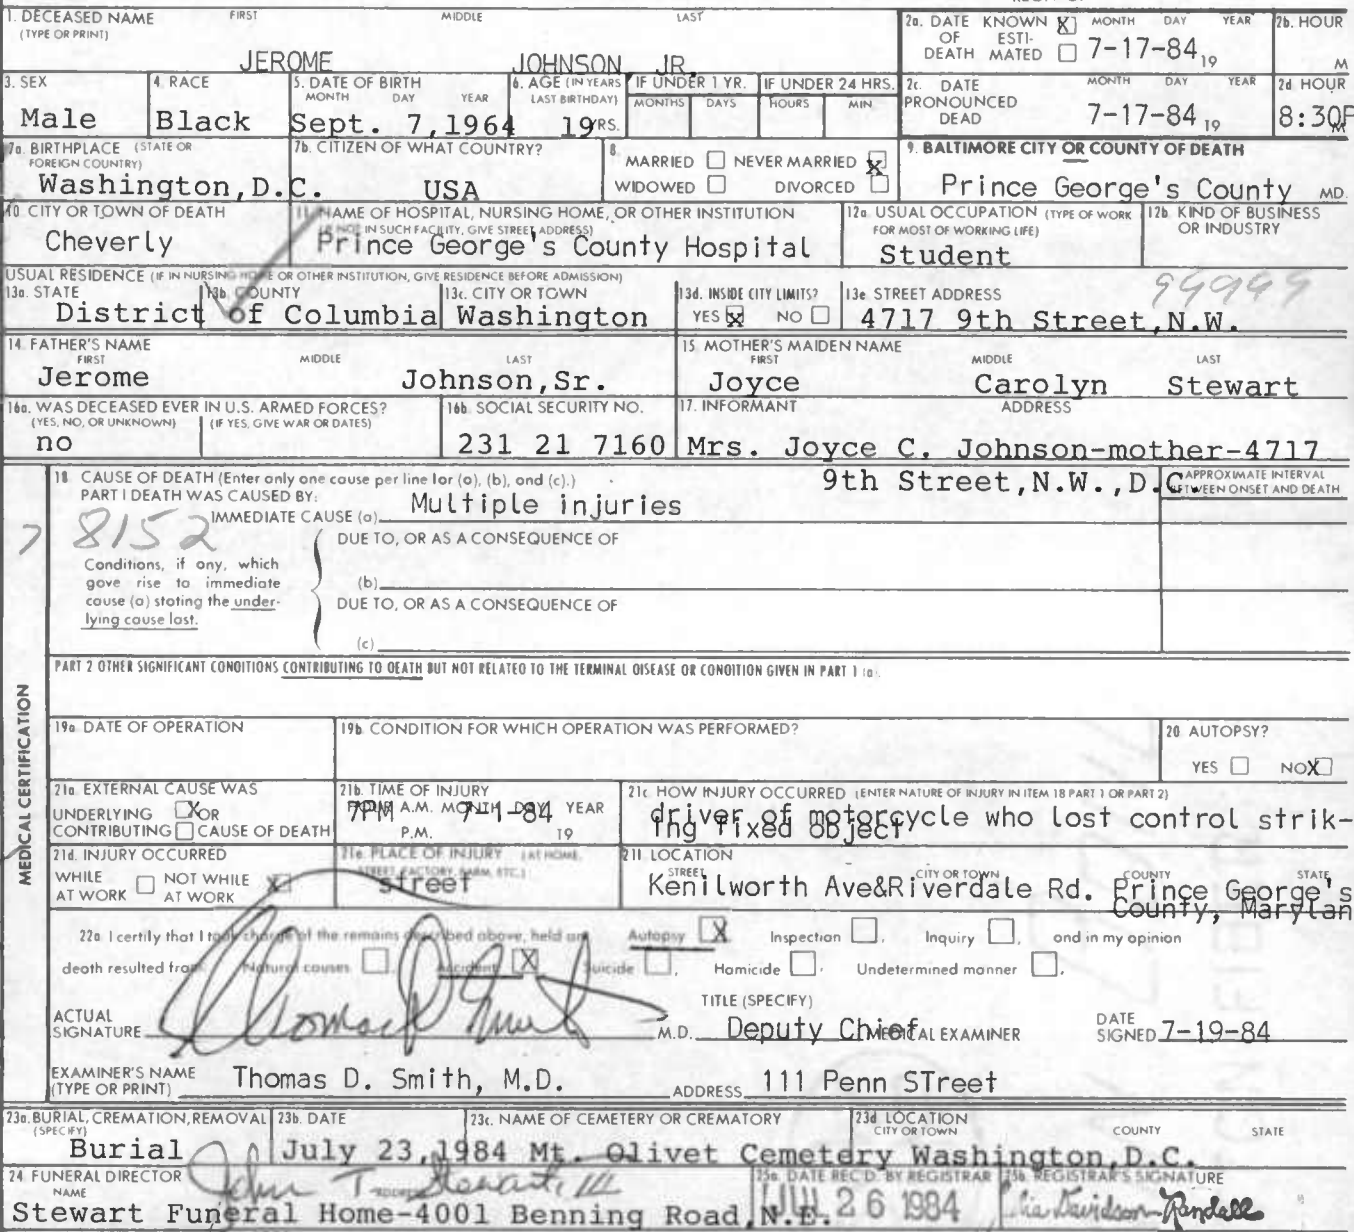 1. DECEASED NAME FIRST MIDDLE LAST
(TYPE OR PRINT)
JEROME JOHNSON, JR.
2a. DATE OF DEATH KNOWN X ESTIMATED MONTH DAY YEAR 7-17-84 19
2b. HOUR M
3. SEX Male
4. RACE Black
5. DATE OF BIRTH MONTH DAY YEAR Sept. 7,1964
6. AGE (IN YEARS LAST BIRTHDAY) 19 YRS.
IF UNDER 1 YR. MONTHS DAYS
IF UNDER 24 HRS. HOURS MIN.
2c. DATE PRONOUNCED DEAD MONTH DAY YEAR 7-17-84 19
2d HOUR 8:30P M
7a. BIRTHPLACE (STATE OR FOREIGN COUNTRY) Washington,D.C.
7b. CITIZEN OF WHAT COUNTRY? USA
8. MARRIED NEVER MARRIED X
WIDOWED DIVORCED
9. BALTIMORE CITY OR COUNTY OF DEATH
Prince George's County MD.
10. CITY OR TOWN OF DEATH Cheverly
11. NAME OF HOSPITAL, NURSING HOME, OR OTHER INSTITUTION
(IF NOT IN SUCH FACILITY, GIVE STREET ADDRESS)
Prince George's County Hospital
12a. USUAL OCCUPATION (TYPE OF WORK FOR MOST OF WORKING LIFE) Student
12b. KIND OF BUSINESS OR INDUSTRY
USUAL RESIDENCE (IF IN NURSING HOME OR OTHER INSTITUTION, GIVE RESIDENCE BEFORE ADMISSION)
13a. STATE 13b. COUNTY District of Columbia
13c. CITY OR TOWN Washington
13d. INSIDE CITY LIMITS? YES X NO
13e STREET ADDRESS 4717 9th Street,N.W.
99999
14. FATHER'S NAME FIRST MIDDLE LAST
Jerome Johnson,Sr.
15. MOTHER'S MAIDEN NAME FIRST MIDDLE LAST
Joyce Carolyn Stewart
16a. WAS DECEASED EVER IN U.S. ARMED FORCES?
(YES, NO, OR UNKNOWN) (IF YES, GIVE WAR OR DATES)
no
16b. SOCIAL SECURITY NO. 231 21 7160
17. INFORMANT ADDRESS
Mrs. Joyce C. Johnson-mother-4717
9th Street,N.W.,D.C.
MEDICAL CERTIFICATION
18. CAUSE OF DEATH (Enter only one cause per line for (a), (b), and (c).)
APPROXIMATE INTERVAL BETWEEN ONSET AND DEATH
PART I DEATH WAS CAUSED BY:
IMMEDIATE CAUSE (a) Multiple injuries
8152
DUE TO, OR AS A CONSEQUENCE OF
Conditions, if any, which
gave rise to immediate
cause (a) stating the under-
lying cause last.
(b)
DUE TO, OR AS A CONSEQUENCE OF
(c)
PART 2 OTHER SIGNIFICANT CONDITIONS CONTRIBUTING TO DEATH BUT NOT RELATED TO THE TERMINAL DISEASE OR CONDITION GIVEN IN PART 1 (a).
19a. DATE OF OPERATION
19b. CONDITION FOR WHICH OPERATION WAS PERFORMED?
20. AUTOPSY?
YES NO X
21a. EXTERNAL CAUSE WAS
UNDERLYING X OR
CONTRIBUTING CAUSE OF DEATH
21b. TIME OF INJURY
7PM A.M. MONTH DAY YEAR 7-1-84
P.M. 19
21c. HOW INJURY OCCURRED (ENTER NATURE OF INJURY IN ITEM 18 PART 1 OR PART 2)
driver of motorcycle who lost control strik-
ing fixed object
21d. INJURY OCCURRED
WHILE AT WORK NOT WHILE AT WORK X
21e. PLACE OF INJURY (AT HOME, STREET, FACTORY, FARM, ETC.)
street
21f. LOCATION STREET CITY OR TOWN COUNTY STATE
Kenilworth Ave&Riverdale Rd. Prince George's
County, Marylan
22a I certify that I took charge of the remains described above, held an Autopsy X Inspection , Inquiry , and in my opinion
death resulted from Natural causes , Accident X Suicide , Homicide , Undetermined manner .
ACTUAL SIGNATURE Thomas D Smith M.D.
TITLE (SPECIFY) Deputy Chief MEDICAL EXAMINER
DATE SIGNED 7-19-84
EXAMINER'S NAME (TYPE OR PRINT) Thomas D. Smith, M.D.
ADDRESS 111 Penn STreet
23a. BURIAL, CREMATION, REMOVAL (SPECIFY) Burial
23b. DATE July 23,1984
23c. NAME OF CEMETERY OR CREMATORY Mt. Olivet Cemetery
23d LOCATION CITY OR TOWN COUNTY STATE
Washington,D.C.
24 FUNERAL DIRECTOR
NAME ADDRESS
John T. Stewart, III
Stewart Funeral Home-4001 Benning Road,N.E.
25a. DATE REC'D. BY REGISTRAR JUL 26 1984
25b. REGISTRAR'S SIGNATURE
Davidson-Randall